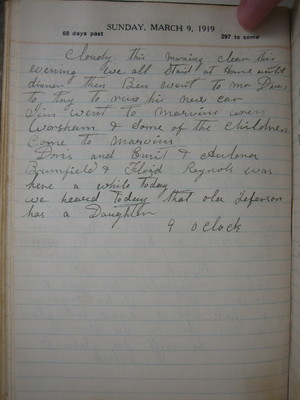 SUNDAY, MARCH 9, 1919
68 days past
297 to come
Cloudy this morning clear this
evening we all Staid at Home until
dinner then Ben went to Mr
to try to run his new car
Jim went to Marvins when
Worsham & Some of the children
Come to Marvins
Doris and Emit &
Brumfield & Floyd Raynols was
here a while today
we heard today that ola Jeferson
has a Daughter
9 oClock